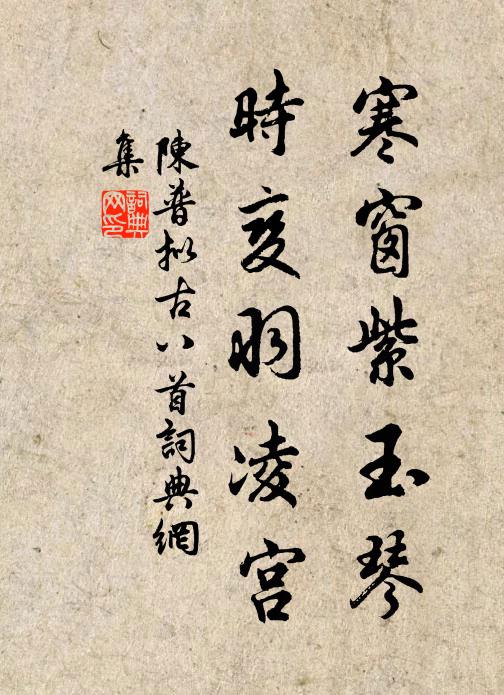 寒窗紫玉琴
時變羽凌宮
陳普擬古八首詞典網
集
詞典
网印